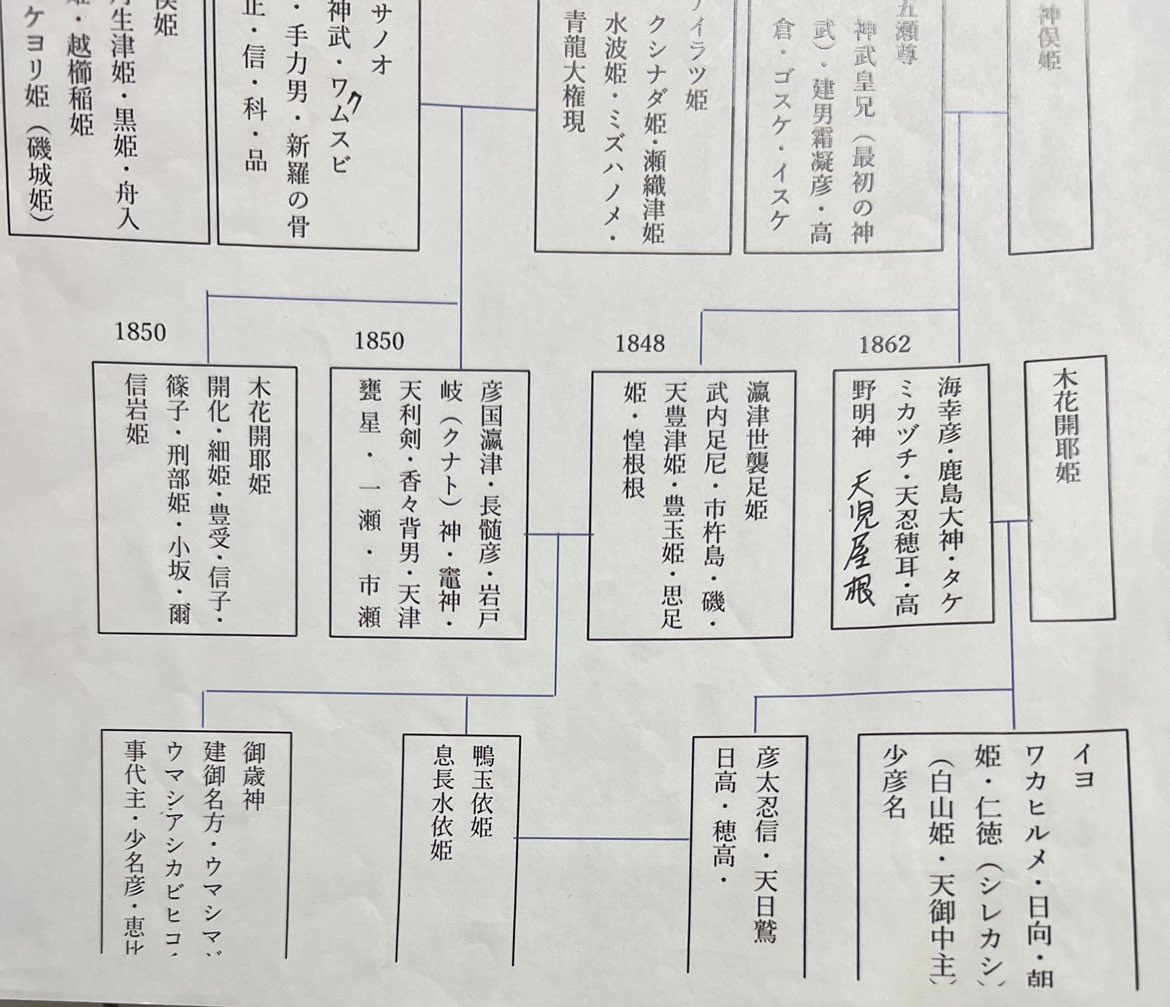 神俣姫
五瀬尊
神武皇兄（最初の神
武）・建男霜凝彦・高
倉・ゴスケ・イスケ
アイラツ姫
クシナダ姫・瀬織津姫
水波姫・ミズハノメ・
青龍大権現
サノオ
神武・ワムスビ
ク
・手力男・新羅の骨
正・信・科・品
俣姫
丹生津姫・黒姫・舟入
姫・越櫛稲姫
ケヨリ姫（磯城姫）
1850
1850
1848
1862
木花開耶姫
海幸彦・鹿島大神・タケ
ミカヅチ・天忍穂耳・高
野明神
天児屋根
瀛津世襲足姫
武内足尼・市杵島・磯・
天豊津姫・豊玉姫・思足
姫・惶根根
彦国瀛津・長髄彦・岩戸
岐（クナト）神・竈神・
天利剣・香々背男・天津
甕星・一瀬・市瀬
木花開耶姫
開化・細姫・豊受・信子・
篠子・刑部姫・小坂・爾
信岩姫
イヨ
ワカヒルメ・日向・朝
姫・仁徳（シレカシ）
（白山姫・天御中主）
少彦名
彦太忍信・天日鷲
日高・穂高・
鴨玉依姫
息長水依姫
御歳神
建御名方・ウマシマ
ウマシアシカビヒコ
事代主・少名彦・恵比